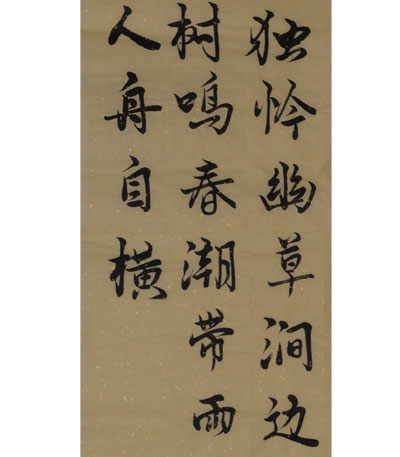 独怜幽草涧边
树鸣春潮带雨
人舟自横